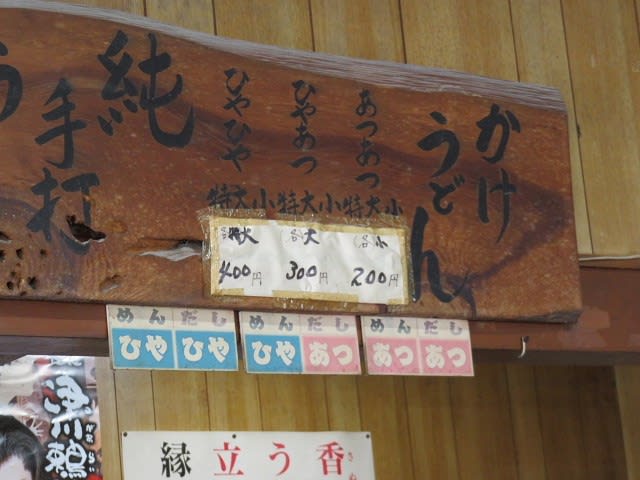 かけ
うどん
あつあつ
特大小
ひやあつ
特大小
ひやひや
特大小
純
手打
う
各小
200円
各大
300円
各特大
400円
めん だし
ひや ひや
めん だし
ひや あつ
めん だし
あつ あつ
縁立う香